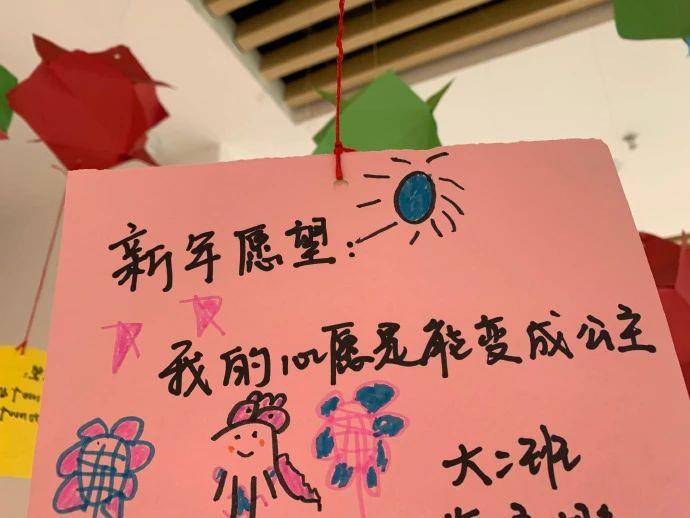 新年愿望：
我的心愿是能变成公主
大二班